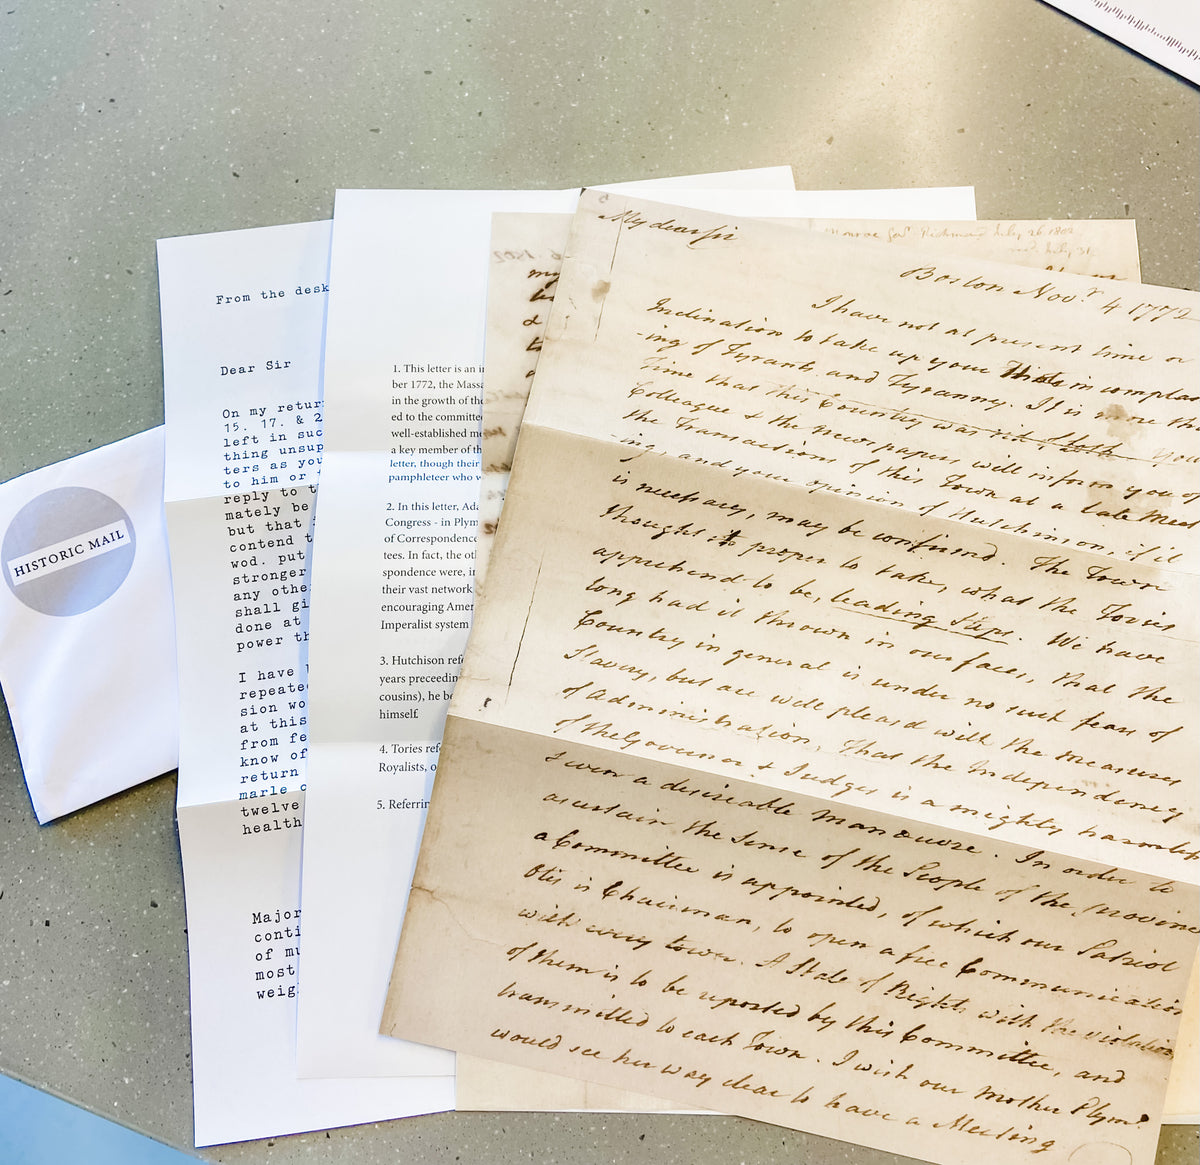 HISTORIC MAIL
From the desk
Dear Sir
On my retur
15. 17. & 2
left in suc
thing unsup
ters as you
to him or
reply to t
mately be
but that
contend t
wod. put
stronger
any othe
shall gi
done at
power th
I have
repeate
sion wo
at this
from fe
know of
return
marle c
twelve
health
Major
conti
of mu
most
weig
1. This letter is an i
ber 1772, the Massa
in the growth of the
ed to the committe
well-established me
a key member of th
letter, though their
pamphleteer who w
2. In this letter, Ada
Congress - in Plym
of Correspondence
tees. In fact, the ot
spondence were, in
their vast network
encouraging Amer
Imperalist system
3. Hutchison refe
years preceedin
cousins), he be
himself.
4. Tories ref
Royalists, o
5. Referrin
Monroe Gov. Richmond July 26 1802
July 31
My dear Sir
Boston Nov.r 4 1772
I have not at present time or
Inclination to take up your in complain
-ing of Tyrants and Tyranny. It is more than
Time that this Country was rid of both. Your
Colleague & the News papers, will inform you of
the Transactions of this Town at a late Meet
-ing, and your opinion of Hutchinson, if it
is necessary, may be confirmd. The Town
thought it proper to take, what the Tories
apprehend to be, leading Steps. We have
long had it thrown in our face, that the
Country in general is under no such fears of
Slavery, but are well pleasd with the measures
of Administration, that the Independency
of the Governor & Judges is a mighty harmless
& even a desireable manouvre. In order to
ascertain the Sense of the People of the province
a Committee is appointed, of which our Patriot
Otis is Chairman, to open a free Communication
with every town. A State of Rights with the violation
of them is to be reported by this Committee, and
transmitted to each Town. I wish our Mother Plymo
would see her way clear to have a Meeting